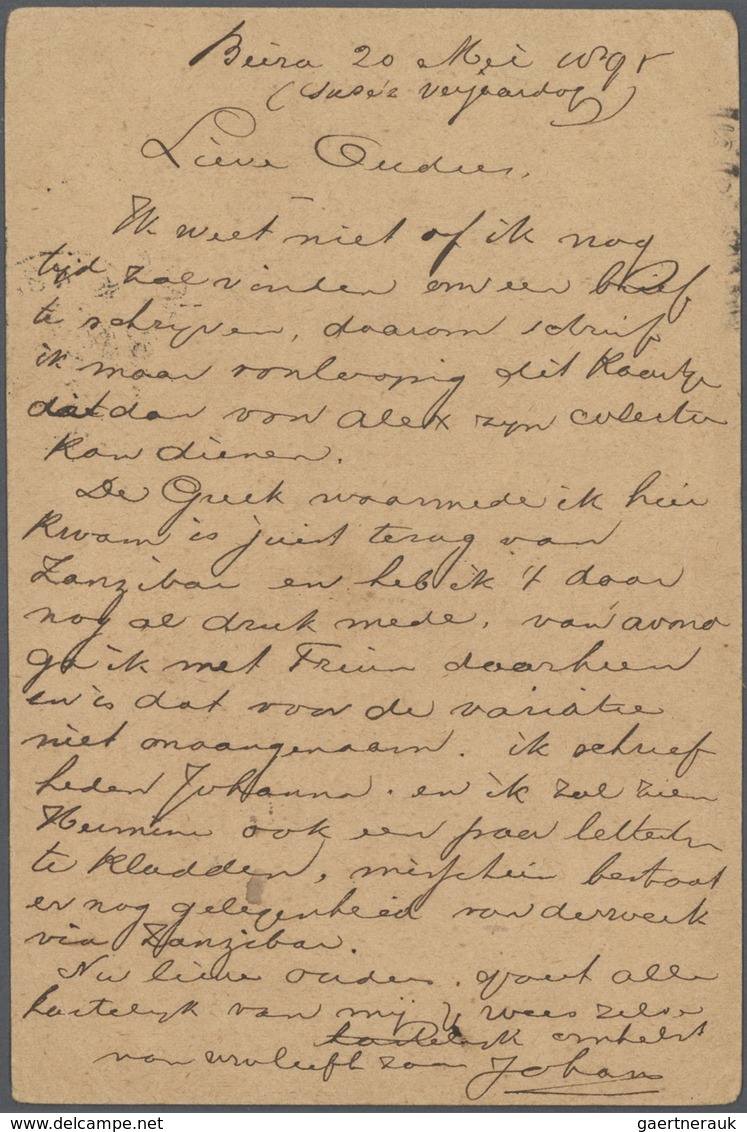 Beira 20 Mei 189
verjaardag)
Lieve Ouders,
Ik weet niet of ik nog
tijd zal vinden om een brief
te schrijven, daarom schrijf
ik maar voorloopig dit Kaartje
dat dan van Alex zijn colectie
kan dienen.
De Griek waarmede ik hier
kwam is juist terug van
Zanzibar en heb ik 't daar
nog al druk mede, van avond
ga ik met daarheen
en is dat voor de variatie
niet onaangenaam. ik schreef
heden Johanna. en ik zal zien
Hermine ook een paar letters
te kladden, misschien bestaat
er nog gelegenheid van deze week
via Zanzibar.
Nu lieve ouders, groet alle
hartelijk van mij & wees zelve
hartelijk omhelst
van uw liefh. zoon Johan
gaertnerauk